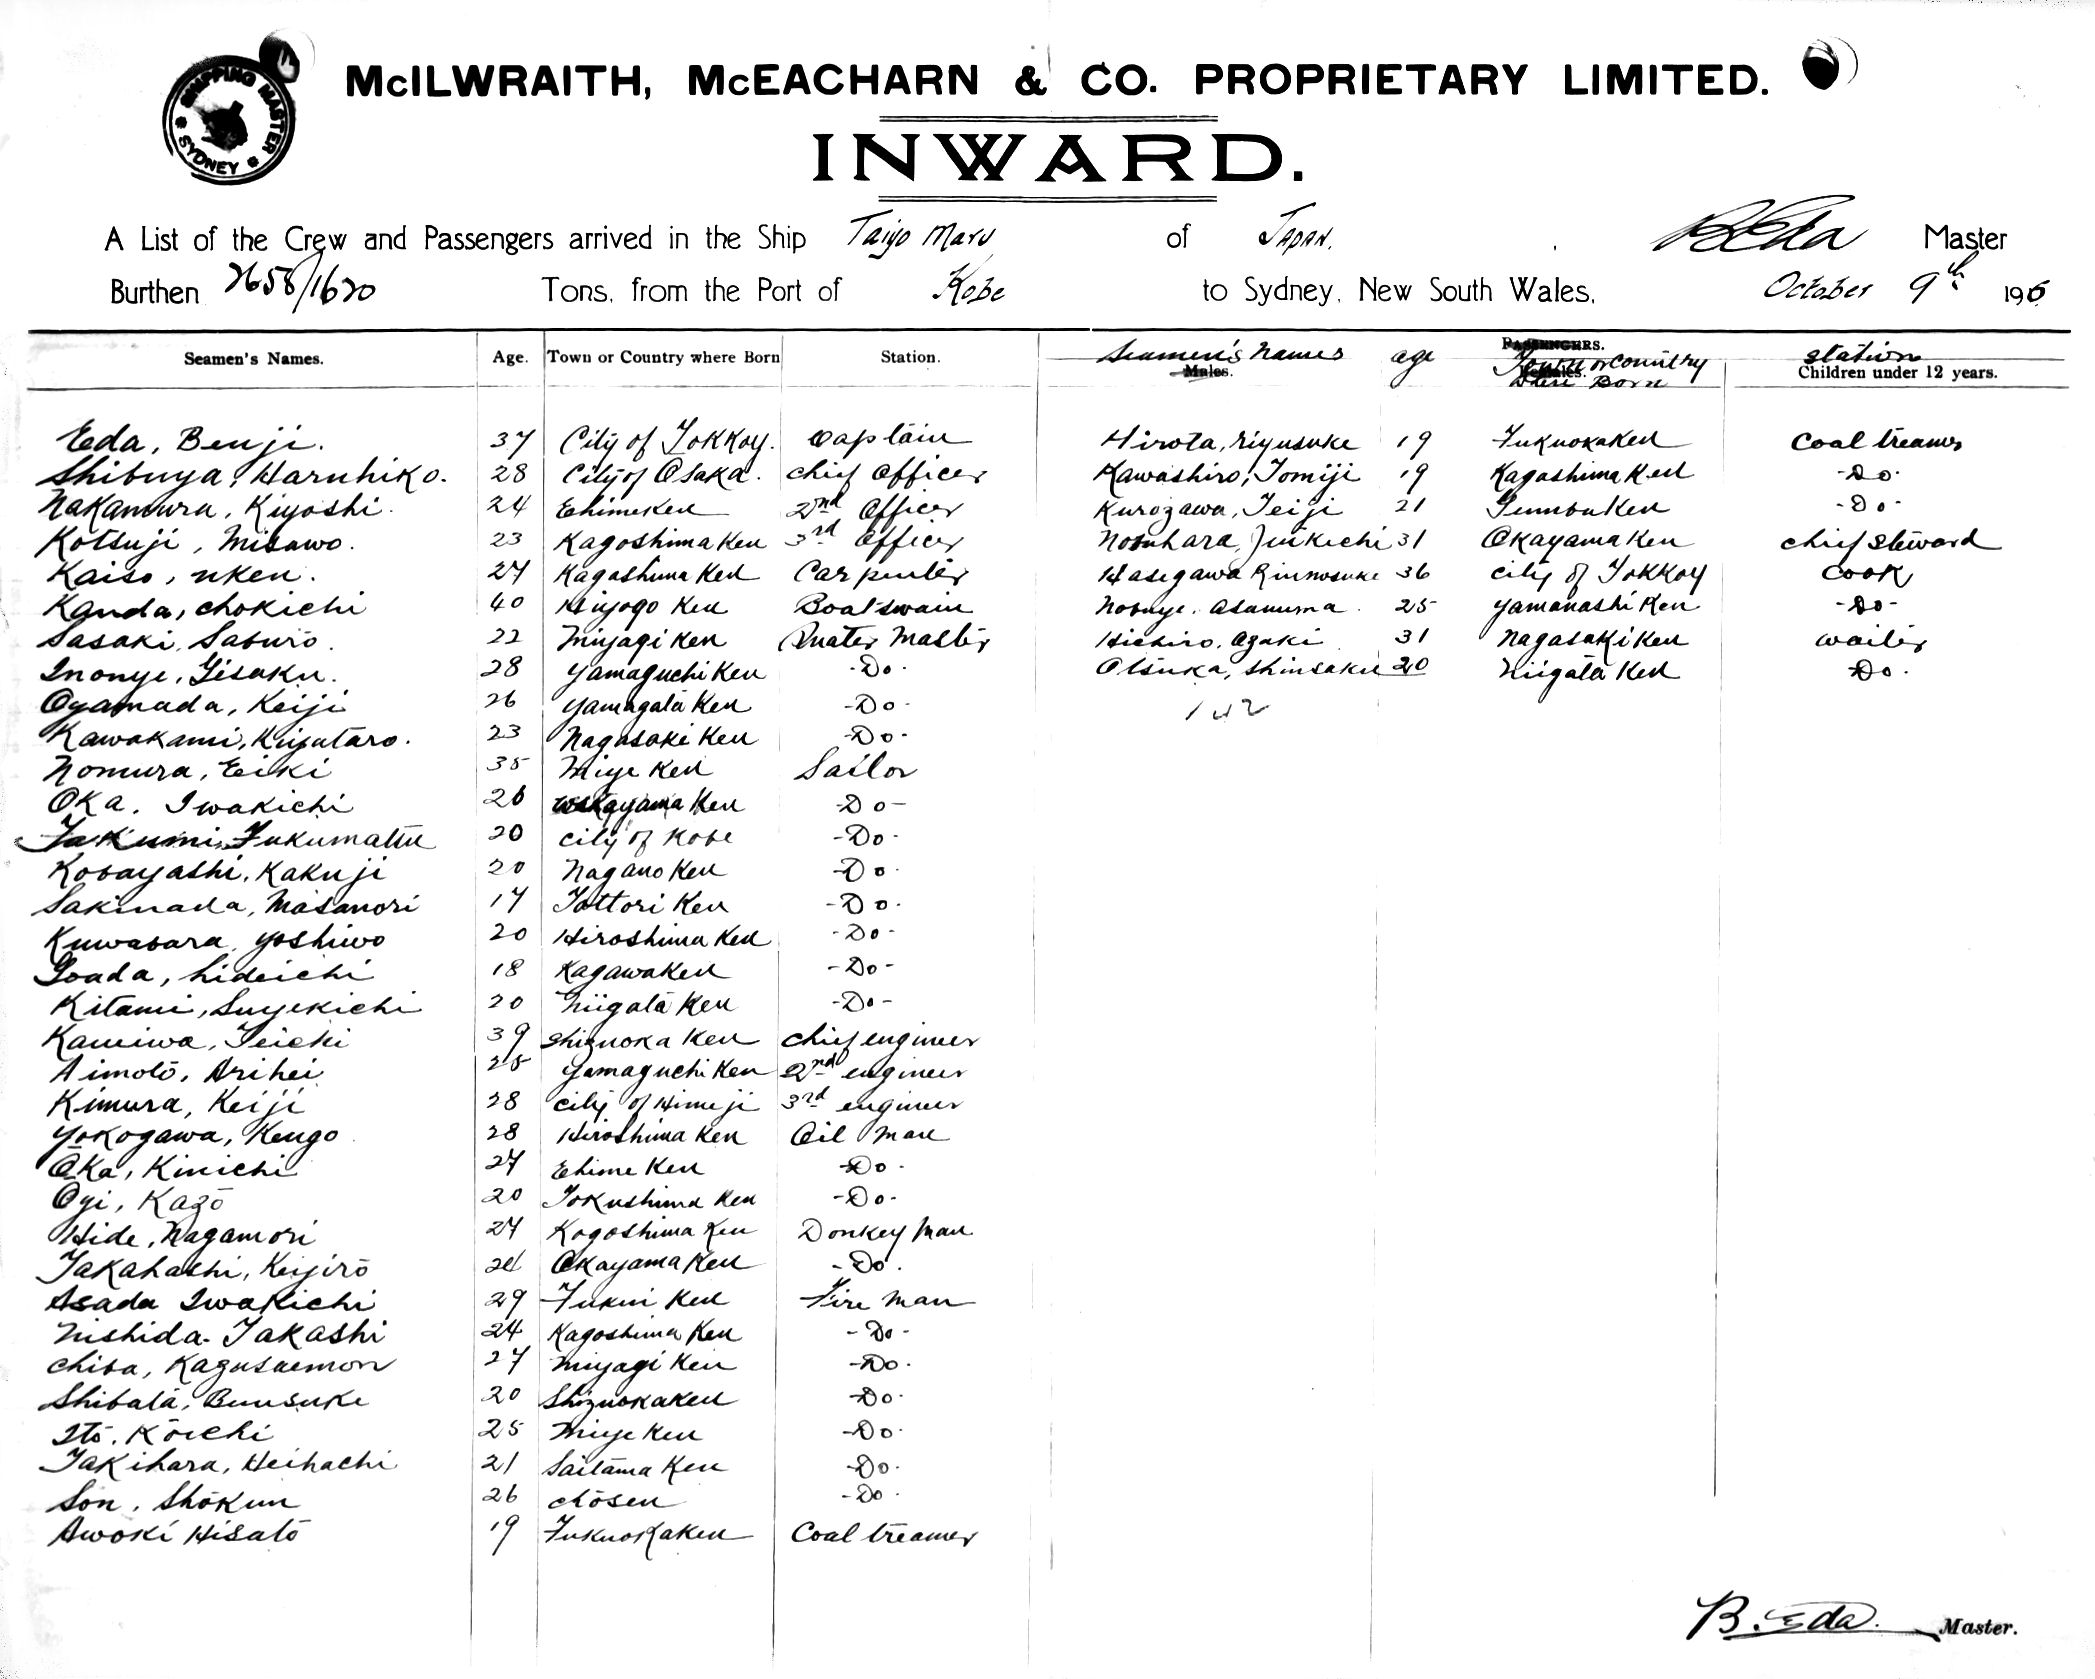 SHIPPING MASTER
* SYDNEY *
McILWRAITH, McEACHARN & CO. PROPRIETARY LIMITED.
INWARD.
A List of the Crew and Passengers arrived in the Ship Taiyo Maru of Japan. B Eda Master
Burthen 2658/1620 Tons, from the Port of Kobe to Sydney, New South Wales, October 9th 1916
Seamen's Names. Age. Town or Country where Born Station. Seamen's Names age PASSENGERS. Town or Country station
Males. Where Born Children under 12 years.
Eda, Benji. 37 City of Tokkoy. Captain Hirota, Riyusuke 19 Fukuoka Ken Coal treamer
Shibuya, Haruhiko. 28 City of Osaka. Chief Officer Kawashiro, Tomiji 19 Kagoshima Ken -Do-
Nakamura, Kiyoshi. 24 Ehime Ken 2nd Officer Kurozawa, Teiji 21 Gunma Ken -Do-
Kotsuji, Misawo. 23 Kagoshima Ken 3rd Officer Nobuhara, Jinkichi 31 Okayama Ken chief steward
Kaiso, nken. 27 Kagoshima Ken Carpenter Hasegawa Rinnosuke 36 city of Tokkoy cook
Kanda, chokichi 40 Hiyogo Ken Boatswain Nobuye. Asanuma. 25 Yamanashi Ken -Do-
Sasaki, Saburo. 22 Miyagi Ken Quater Master Hichiro, Ozaki 31 Nagasaki Ken waiter
Inouye, Gisaku. 28 Yamaguchi Ken -Do- Otsuka, Shinsaku 20 Niigata Ken Do.
Oyamada, Keiji 26 Yamagata Ken -Do-
Kawakami, Kiyutaro. 23 Nagasaki Ken -Do-
Nomura, Eiki 35 Miye Ken Sailor
Oka. Iwakichi 26 Wakayama Ken -Do-
Takumi, Fukumatsu 20 city of Kobe -Do-
Kobayashi, Kakuji 20 Nagano Ken -Do-
Sakinada, Masanori 17 Tottori Ken -Do-
Kuwabara, Yoshiwo 20 Hiroshima Ken -Do-
Goada, hideichi 18 Kagawa Ken -Do-
Kitami, Suyekichi 20 Niigata Ken -Do-
Kamiwa, Teichi 39 Shizuoka Ken chief engineer
Aimoto, Arihei 25 Yamaguchi Ken 2nd engineer
Kimura, Keiji 28 city of Himeji 3rd engineer
Yokogawa, Kengo 28 Hiroshima Ken Oil man
Oka, Kinichi 27 Ehime Ken -Do-
Ogi, Kazō 20 Tokushima Ken -Do-
Hide, Nagamori 27 Kogoshima Ken Donkey Man
Takahashi, Keijirō 24 Okayama Ken -Do.
Asada Iwakichi 29 Fukui Ken Fire man
Nishida. Takashi 24 Kagoshima Ken -Do-
Chiba, Kazusaemon 27 Miyagi Ken -Do-
Shibata, Bunsuke 20 Shizuoka Ken -Do-
Itō. Kōichi 25 Miye Ken -Do-
Takihara, Heihachi 21 Saitama Ken -Do-
Son, Shōkun 26 chōsen -Do-
Awoki Hisato 19 Fukuoka Ken Coal treamer
B. Eda. Master.